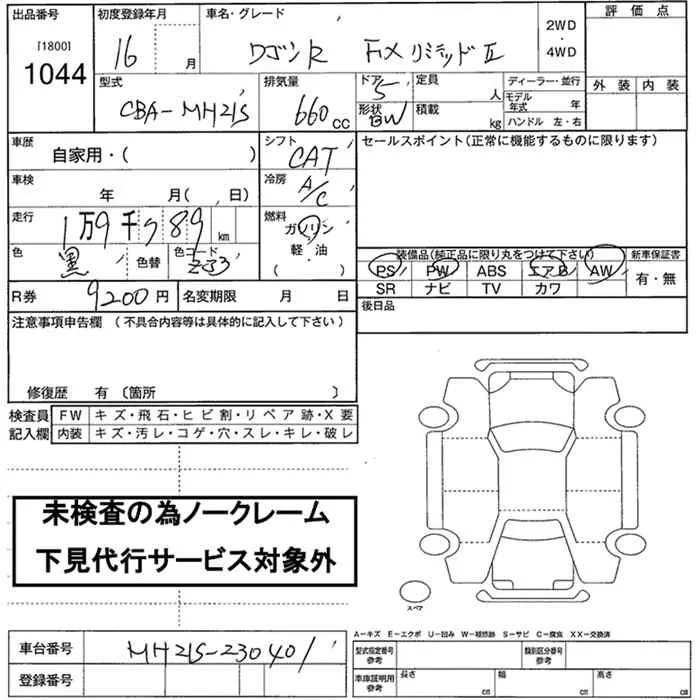 出品番号 初度登録年月 車名・グレード 評価点
[1800] 1044 16 月 ワゴンR FXリミテッドⅡ 2WD ・ 4WD
型式 排気量 ドア 5 定員 人 ディーラー・並行 外装 内装
CBA-MH21S 660cc 形状 BW 積載 kg モデル年式 年
ハンドル 左・右
車歴 自家用・( ) シフト CAT セールスポイント(正常に機能するものに限ります)
車検 年 月( 、日) 冷房 A/C
走行 1万9千789km 燃料 ガソリン
色 黒 色替 色コード Z-33 軽・油 ( )
装備品(純正品に限り丸をつけて下さい) 新車保証書
PS PW ABS エアB AW 有・無
SR ナビ TV カワ
R券 9200円 名変期限 月 日 後日品
注意事項申告欄(不具合内容等は具体的に記入して下さい)
修復歴 有〔箇所 〕
検査員 FW キズ・飛石・ヒビ割・リペア跡・X要
記入欄 内装 キズ・汚レ・コゲ・穴・スレ・キレ・破レ
未検査の為ノークレーム
下見代行サービス対象外
スペア
A-キズ E-エクボ U-凹み W-補修跡 S-サビ C-腐食 XX-交換済
車台番号 MH21S-230401 型式指定番号 参考 類別区分番号 参考
登録番号 車庫証明用 参考 長さ cm 幅 cm 高さ cm